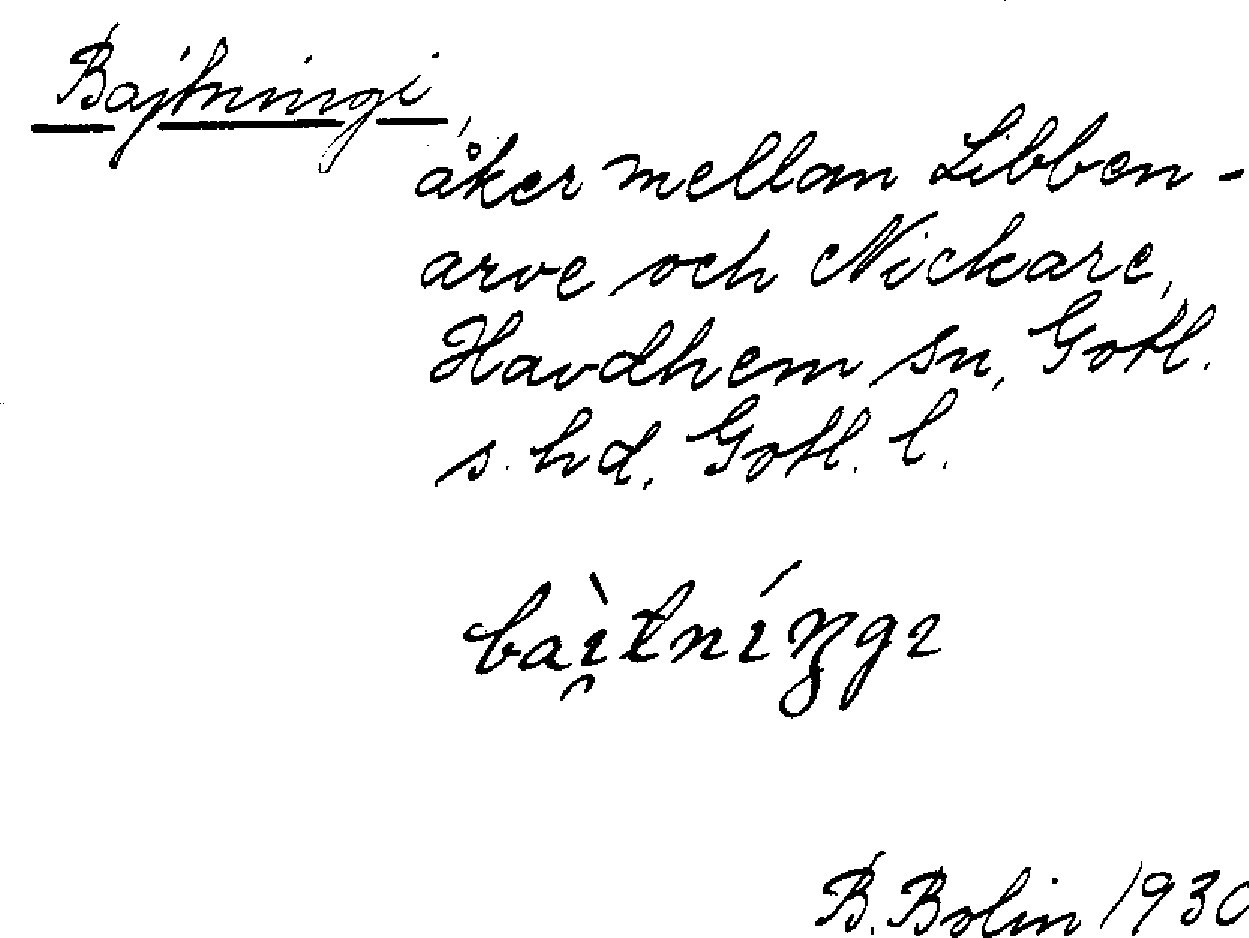 Bajtningi,
åker mellan Libben-
arve och Nickare,
Havdhem sn, Gotl.
s. hd, Gotl. l.
baı̯̀tnı́ŋgı
B. Bolin 1930